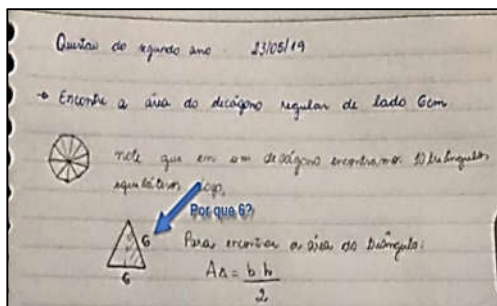 Questão do segundo ano 23/05/19
→ Encontre a área do decágono regular de lado 6cm
note que em um decágono encontramos 10 triângulos
equiláteros logo,
Por que 6?
6
Para encontrar a área do triângulo:
6
A∆ = b h
2